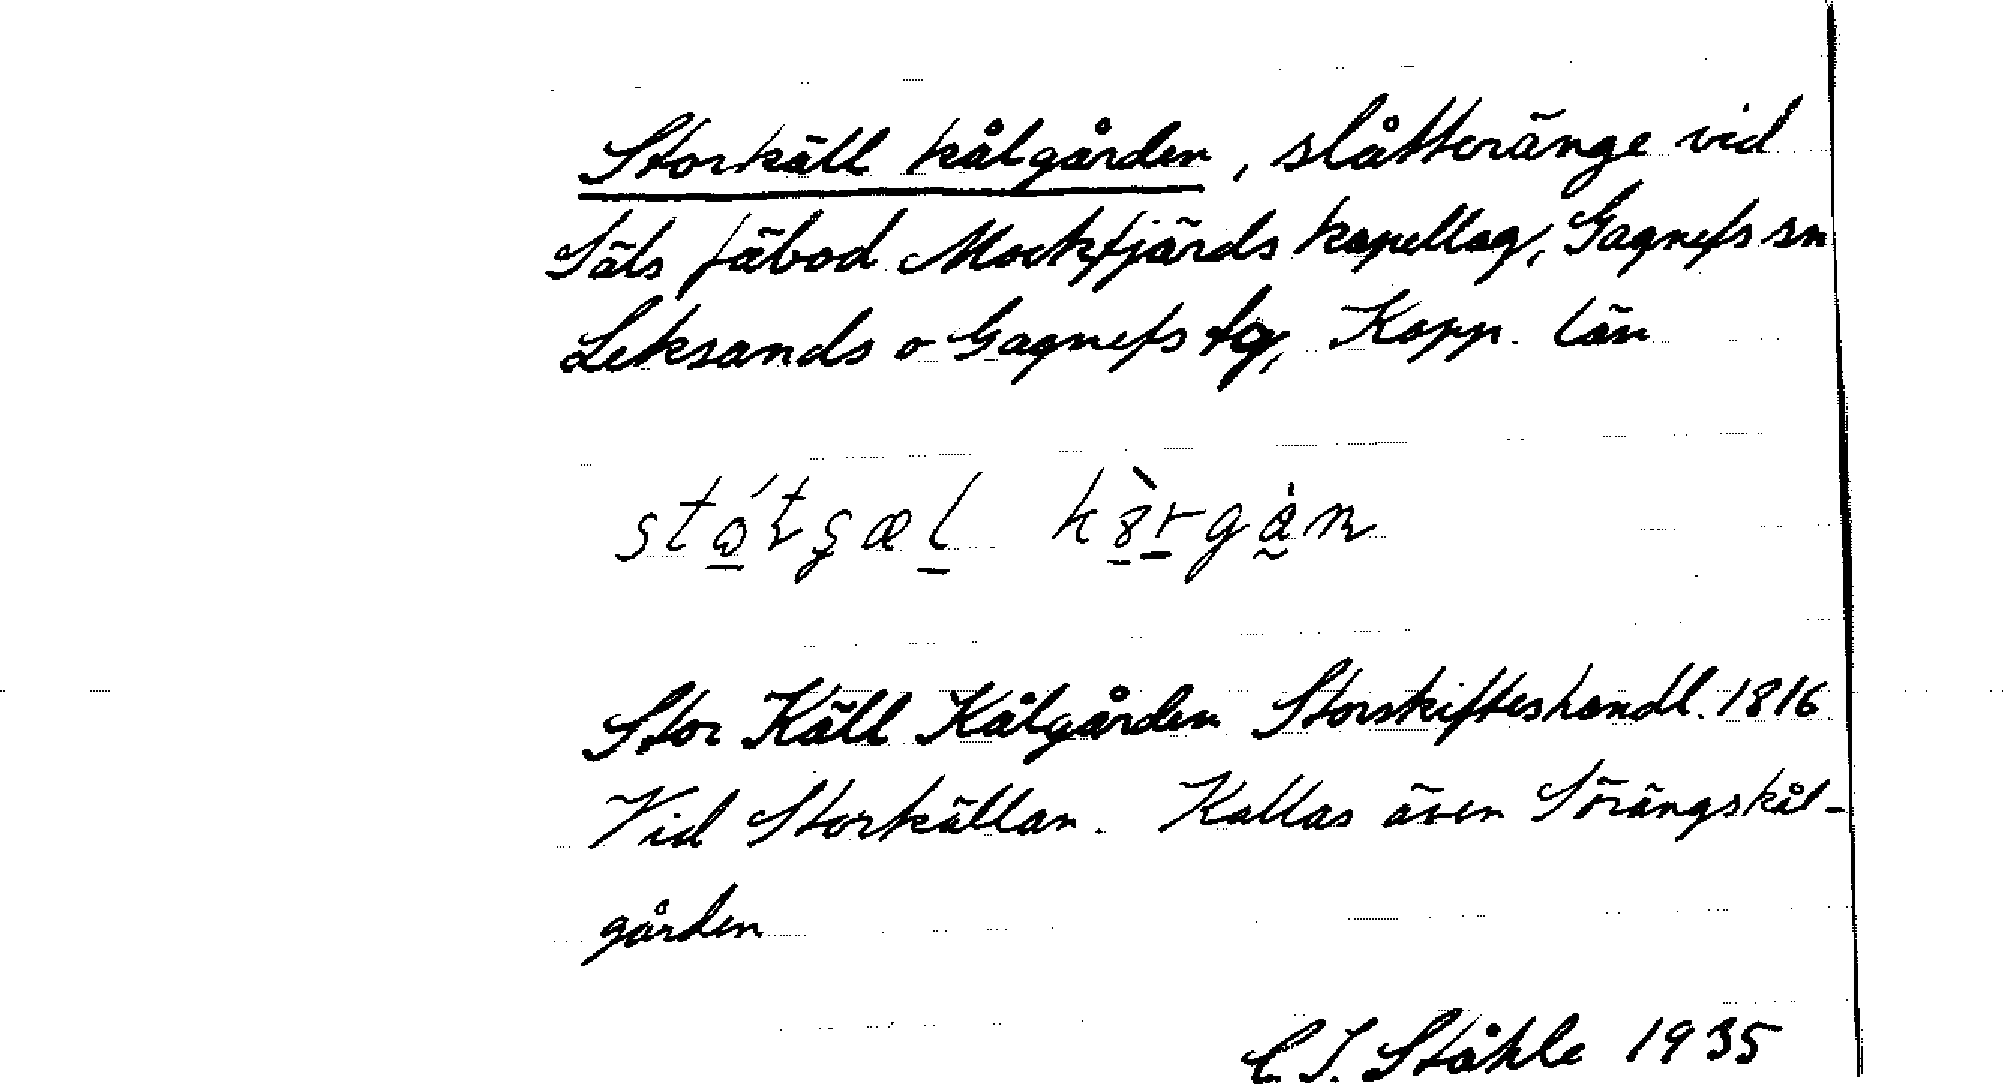 Storkäll kålgården, slåtteränge vid
Säls fäbod Mockfjärds kapellag, Gagnefs sn
Leksands o Gagnefs tg, Kopp. län
Stor Käll Kålgården Storskifteshandl. 1816
Vid Storkällan. Kallas även Sörängskål-
gården
C. I. Ståhle 1935